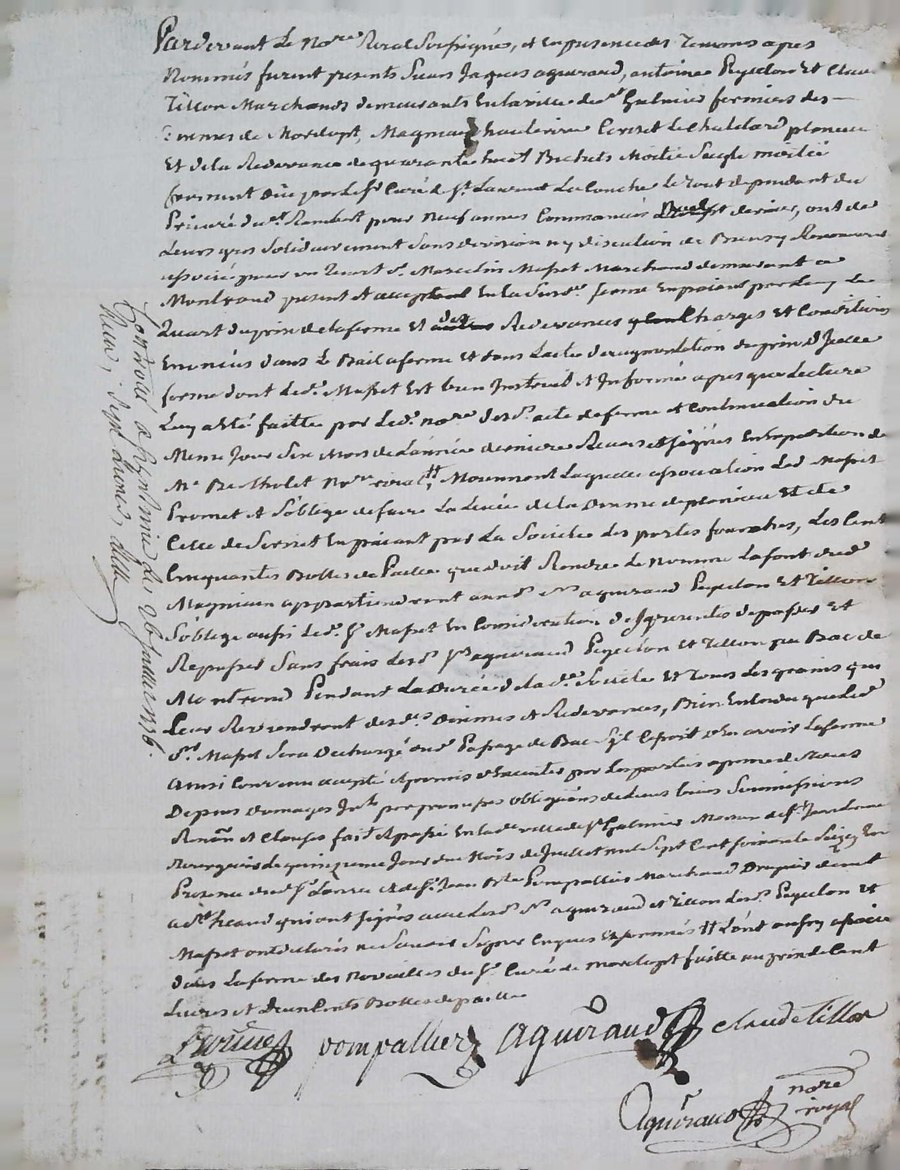 Pardevant Le No.re Royal Soussigné, et En presence des Temoins apres
Nommés furent presents Srurs Jaques aguiraud, antoine Peycelon Et Claude
Tillon Marchands demeurants En la ville de St. Galmier fermiers des
de Mardupt, Magnieu hauterive Cerizet Le Chatelard planieu
Et de la Redevance de quarante huict Bichets Moitié Seigle moitié
froment Düe par Le Sr. Curé de St. Laurent La Conche Le tout dependant du
Prieuré de St. Rambert pour Neuf années Commancées dernier, ont de
Leurs gres Solidairement Sans division ny discution de Biens y Renoncant
associé pour un Quart Sr. Marcelin Mafret Marchand demeurant a
Montrond present et acceptant En la Susd. ferme En paiant par Luy Le
Quart du prix de la ferme Et des Redevances Charges et Conditions
Enoncées dans Le Bail a ferme Et dans Lacte daugmentation du prix dJcelle
ferme dont Led. Mafret Est bien Instruit et Informé apres que Lecture
Luy a Eté faitte par Led. no.re desd. acte de ferme et Continuation du
Meme Jour Six Mars de Lannée derniere Receus et Signés En Expedition de
Me. Berthollet No.re roial, Moiennant Laquelle association Led. Mafret
Promet et Soblige de faire La Levée de la Dixme de planieu Et de
Celle de Serizet En païant par La Societé des partes franches, Les Cent
Cinquantes Bottes de Paille que doit Rendre Le Nommé Lafont de
Magnieu appartiendront auxd. Srs. aguiraud Peycelon Et Tillon
Soblige aussi Led. Sr. Mafret En Consideration de Jpresentes de passer Et
Repasser Sans frais Lesd. Srs. aguiraud Peycelon et Tillon au Bac de
Montrond Pendant La Durée de lad. Societé Et Tous Les grains qui
Leur Reviendront desd. Dixmes et Redevances, Bien Entendu que Led.
Sr. Mafret Sera Dechargé aud. Passage de Bac Sjl Cessoit den avoir La ferme
Ainsi Convenu accepté et promis dExecuter par Les parties a peine de Tous
Depens Domages Int. par promesses obligaons de leurs biens Soumissions
Renon. et Clauses fait et passé En lad. ville de St. Galmier Maison de Sr. Jean
le quinzieme Jour du Mois de Juillet mil Sept Cent soixante Seize, En
Presence de Sr. Larive et de Sr. Jean Pompallier Marchand Drapier
a St. heand qui ont signés avec Lesd. Srs. aguiraud et Tillon Lesd. Peycelon Et
Mafret ont declarés ne Savoir Signer Enquis Et Sommés Et Lont aussy associé
dans La ferme des Novailles du Sr. Curé de Mardupt faitte au prix de Cent
Livres et Deux Cents Bottes de paille
Larive pompallier Aguiraud claude tillon
Aguiraud no.re
royal
Controllé a St. Galmier le 26 Juillet 1776.
Receu, Sept Livres,